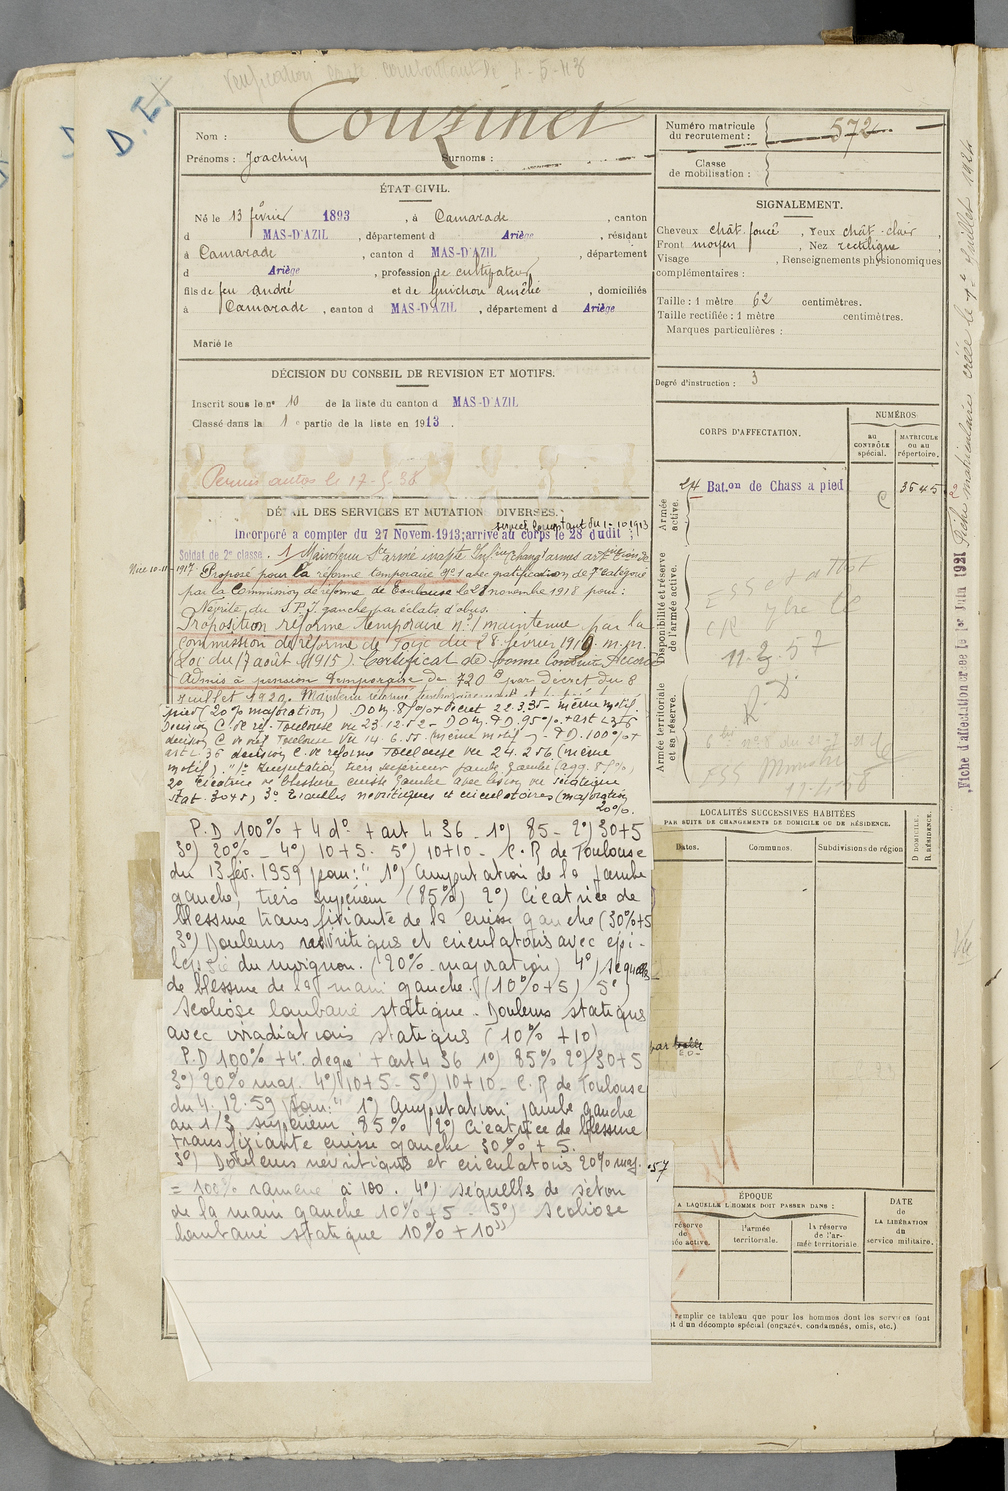 Vérification carte combattant De 4-5-48
D.EX
Nom : Couzinet
Prénoms : Joachim Surnoms :
ÉTAT CIVIL.
Né le 13 février 1893, à Camarade, canton
d MAS-D'AZIL, département d Ariège, résidant
à Camarade, canton d MAS-D'AZIL, département
d Ariège, profession de cultivateur
fils de feu André et de Guichou Amélie, domiciliés
à Camarade, canton d MAS-D'AZIL, département d Ariège
Marié le
DÉCISION DU CONSEIL DE REVISION ET MOTIFS.
Inscrit sous le n° 10 de la liste du canton d MAS-D'AZIL
Classé dans la 1e partie de la liste en 1913.
Permis autos le 17-5-38
DÉTAIL DES SERVICES ET MUTATIONS DIVERSES.
services comptant du 1-10 1913
Incorporé à compter du 27 Novem. 1913; arrivé au corps le 28 dudit;
Soldat de 2e classe. Maintenu Sce armé inapte
Nice 10-11-1917. Proposé pour la réforme temporaire N°1 avec gratification de 7e catégorie
par la Commission de réforme de Toulouse le 28 novembre 1918 pour:
Névrite du S.P.I gauche par éclats d'obus.
Proposition réforme temporaire n°1 maintenue par la
commission de réforme de Foix du 28 février 1919. m.m.
(Loi du 17 août 1915). Certificat de bonne Conduite Accordé
Admis à pension temporaire de 720 F par décret du 8
juillet 1920. Maintenu réforme
pied (20% majoration) Dom. 85% + Décret 22.3.35 même motif.
Décision C. de réf. Toulouse du 23.12.52 - Dom. P.D. 95% + art L 36
décision C. de réf Toulouse du 14.6.55 (même motif) - P.D. 100% +
art L 36 décision C. de réforme Toulouse du 24.2.56 (même
motif). "1° Amputation tiers supérieur jambe gauche (agg. 85%,
2° Cicatrice de blessure cuisse gauche avec lésion du sciatique
Stat. 30+5), 3° Troubles névritiques et circulatoires (majoration
20%.
P.D 100% + 4 d° + art L 36 - 1°) 85 - 2°) 30+5
3°) 20% - 4°) 10+5 - 5°) 10+10 - C.R de Toulouse
du 13 fév. 1959 pour: "1°) Amputation de la jambe
gauche, tiers supérieur (85%) 2°) Cicatrice de
blessure transfixiante de la cuisse gauche (30%+5
3°) Douleurs névritiques et circulatoires avec épi-
lepsie du moignon. (20% majoration) 4°) séquelles
de blessure de la main gauche. (10%+5) 5°)
Scoliose lombaire statique. Douleurs statiques
avec irradiations statiques (10% +10)
P.D 100% + 4° degré + art L 36 1°) 85% 2°) 30+5
3°) 20% maj. 4°) 10+5 - 5°) 10+10 - C.R de Toulouse
du 4.12.59 pour: "1°) Amputation jambe gauche
au 1/3 supérieur 85% 2°) Cicatrice de blessure
transfixiante cuisse gauche 30% + 5.
3°) Douleurs névritiques et circulatoires 20% maj.
= 100% ramené à 100. 4°) Séquelles de séton
de la main gauche 10% +5 - 5°) Scoliose
lombaire statique 10% + 10"
Numéro matricule du recrutement : 572
Classe de mobilisation :
SIGNALEMENT.
Cheveux chât. foncé, Yeux chât. clair,
Front moyen, Nez rectiligne
Visage , Renseignements physionomiques
complémentaires :
Taille : 1 mètre 62 centimètres.
Taille rectifiée : 1 mètre centimètres.
Marques particulières :
Degré d'instruction : 3
CORPS D'AFFECTATION.
NUMÉROS
au CONTRÔLE spécial.
MATRICULE ou au répertoire.
Armée active.
24 Bat.on de Chass à pied
3545
Disponibilité et réserve de l'armée active.
11.3.57
Armée territoriale et sa réserve.
R.D
ESS
LOCALITÉS SUCCESSIVES HABITÉES
PAR SUITE DE CHANGEMENTS DE DOMICILE OU DE RÉSIDENCE.
Dates. Communes. Subdivisions de région
D. DOMICILE. R. RÉSIDENCE.
par
57
ÉPOQUE
A LAQUELLE L'HOMME DOIT PASSER DANS :
réserve de
ée active.
l'armée territoriale.
la réserve de l'armée territoriale.
DATE de LA LIBÉRATION du service militaire.
remplir ce tableau que pour les hommes dont les services font
t d'un décompte spécial (engagés, condamnés, omis, etc.)
Fiche d'affectation créée le 1er Juin 1921
Fiche matriculaire créée le 1er Juillet 1924